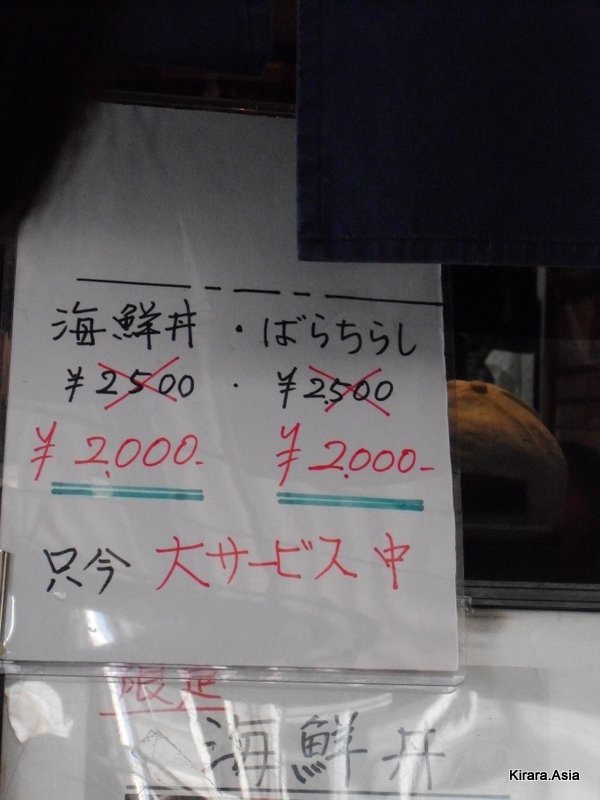 海鮮丼・ばらちらし
¥2500・¥2,500
¥2,000- ¥2,000-
只今 大サービス中
限定
海鮮丼
Kirara.Asia